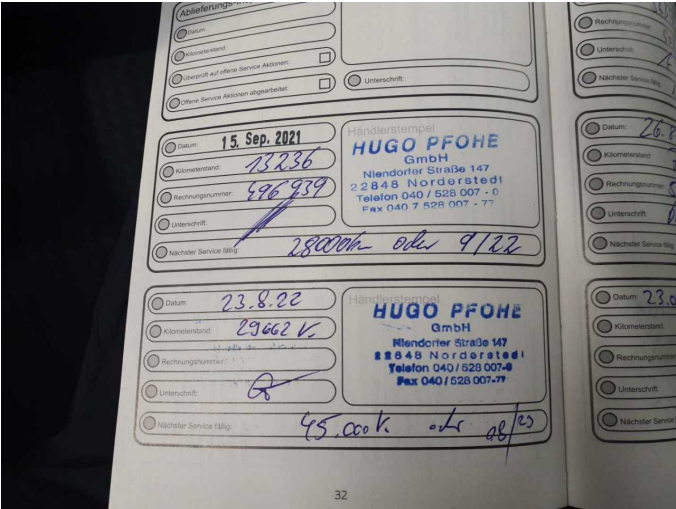 Ablieferungs-In
Datum:
Kilometerstand:
Überprüft auf offene Service Aktionen:
Offene Service Aktionen abgearbeitet:
Unterschrift:
Datum: 15. Sep. 2021
Kilometerstand: 13236
Rechnungsnummer: 496939
Unterschrift:
Nächster Service fällig: 28000km oder 9/22
Händlerstempel
HUGO PFOHE
GmbH
Niendorfer Straße 147
22848 Norderstedt
Telefon 040 / 528 007 - 0
Fax 040 7 528 007 - 77
Datum: 23.8.22
Kilometerstand: 29662 K.
Rechnungsnummer:
Unterschrift:
Nächster Service fällig: 45.000 K. oder 08/23
Händlerstempel
HUGO PFOHE
GmbH
Niendorfer Straße 147
22848 Norderstedt
Telefon 040 / 528 007-0
Fax 040 / 528 007-77
32
Rechnungsnummer
Unterschrift:
Nächster Service fällig:
Datum: 26.8
Kilometerstand:
Rechnungsnummer:
Unterschrift:
Nächster Service fällig
Datum: 23.0
Kilometerstand:
Rechnungsnummer
Unterschrift:
Nächster Service